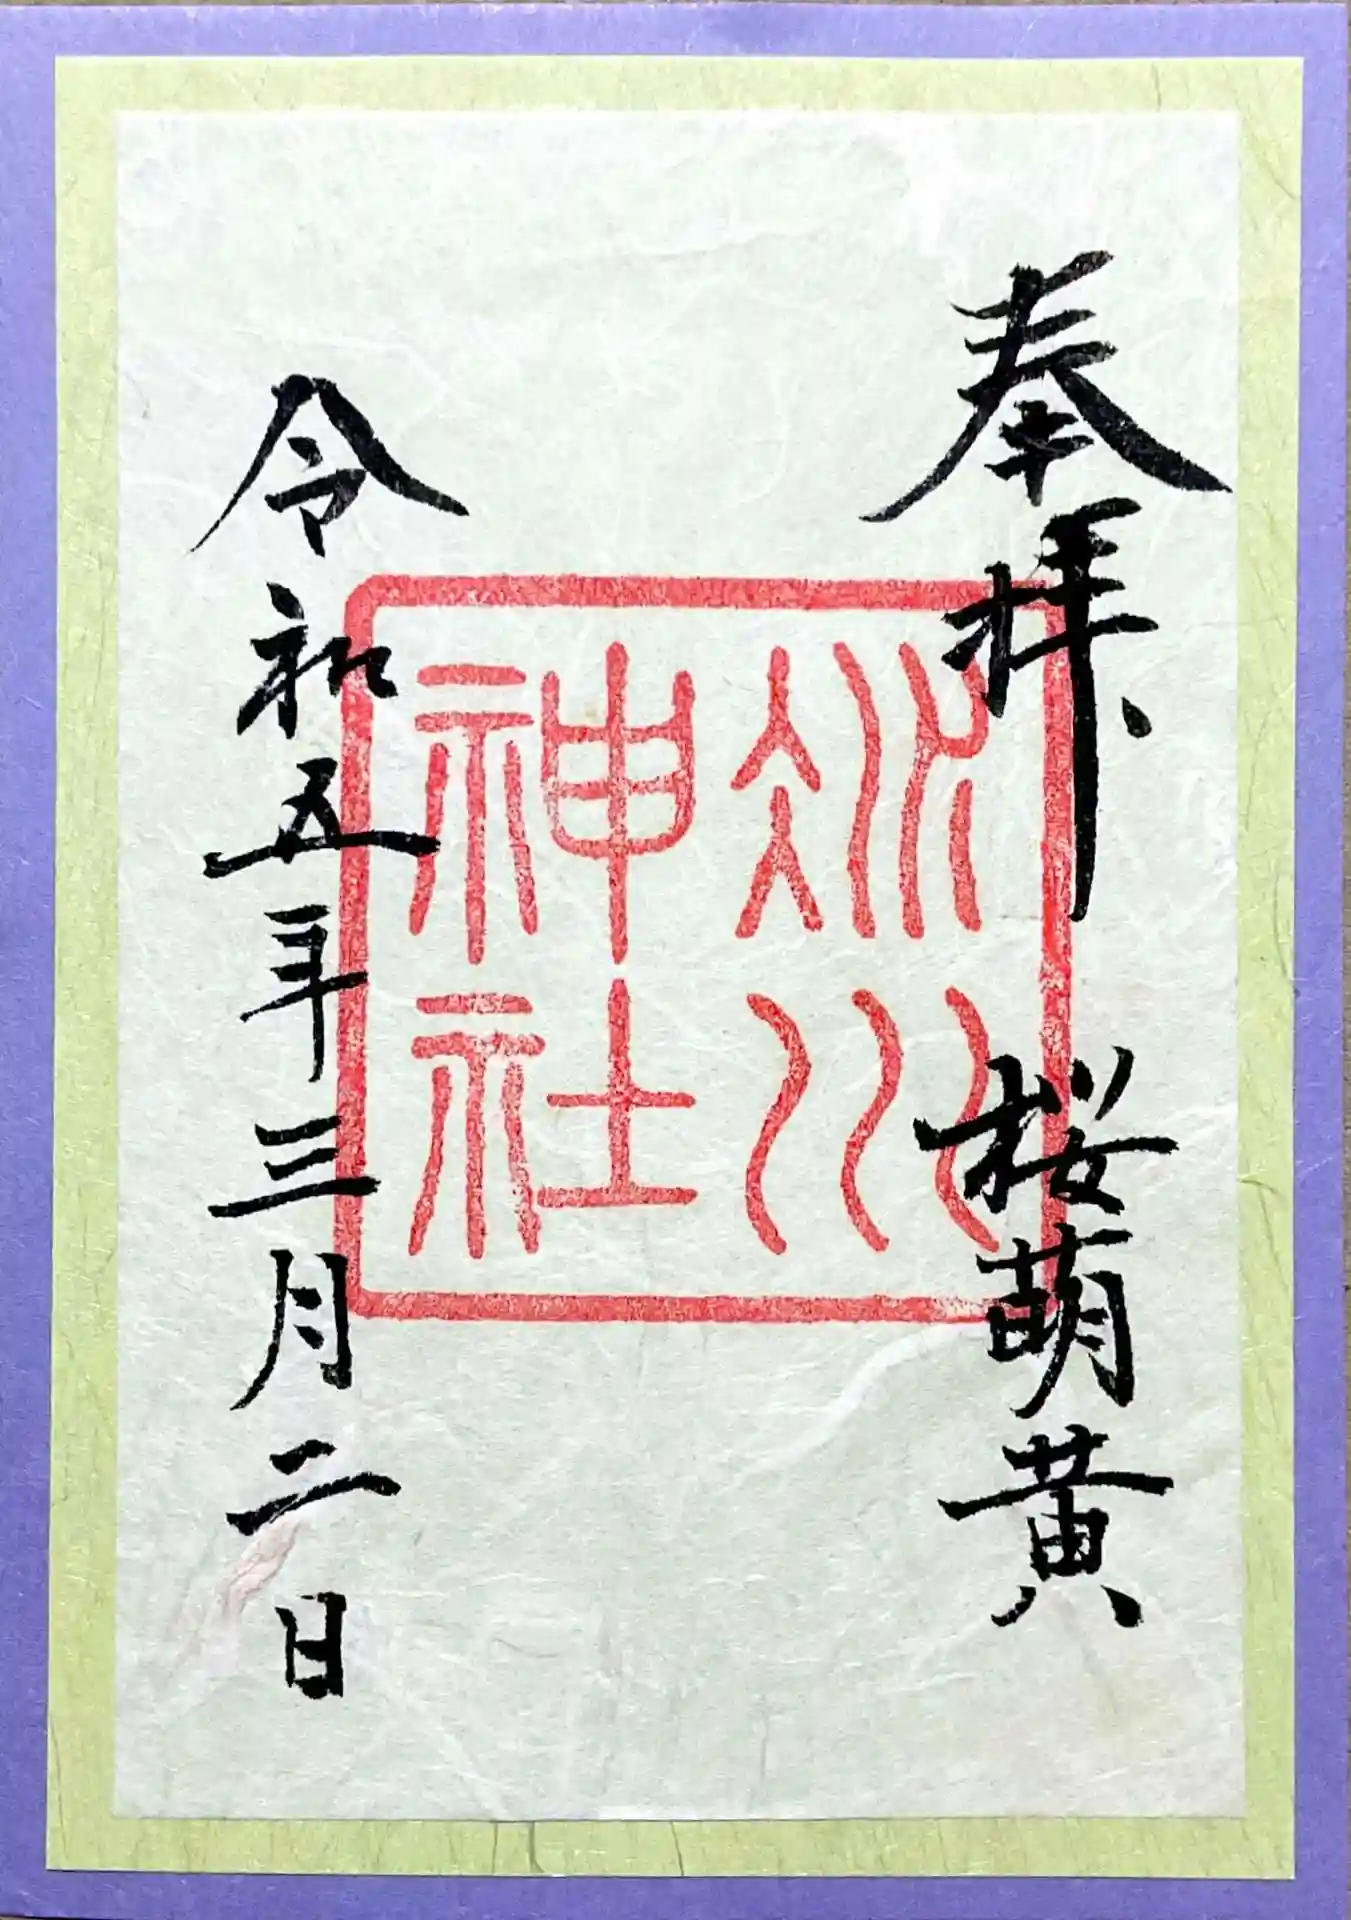 奉拝、 桜萌黄
冰川
神社
令和五年三月二日